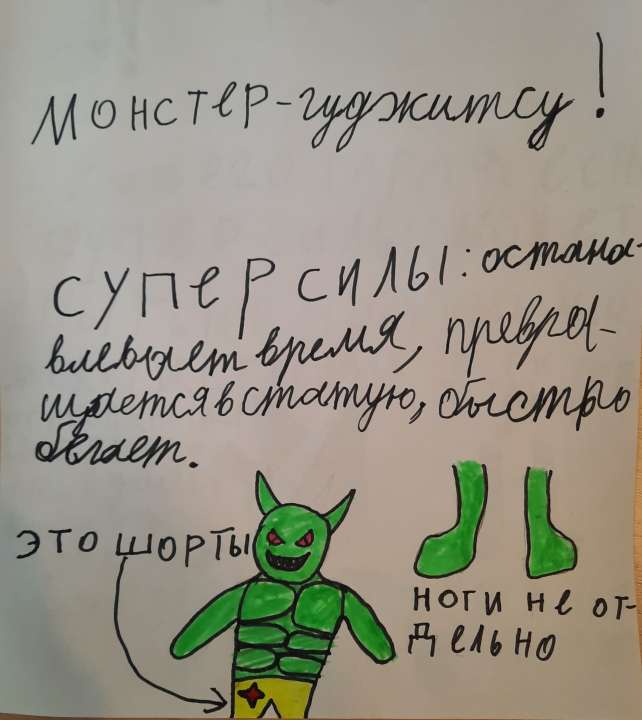 Монстер-гуджитсу!
Супер силы: остана-
влевает время, превра-
щается в статую, быстро
бегает.
это шорты
ноги не от-
дельно